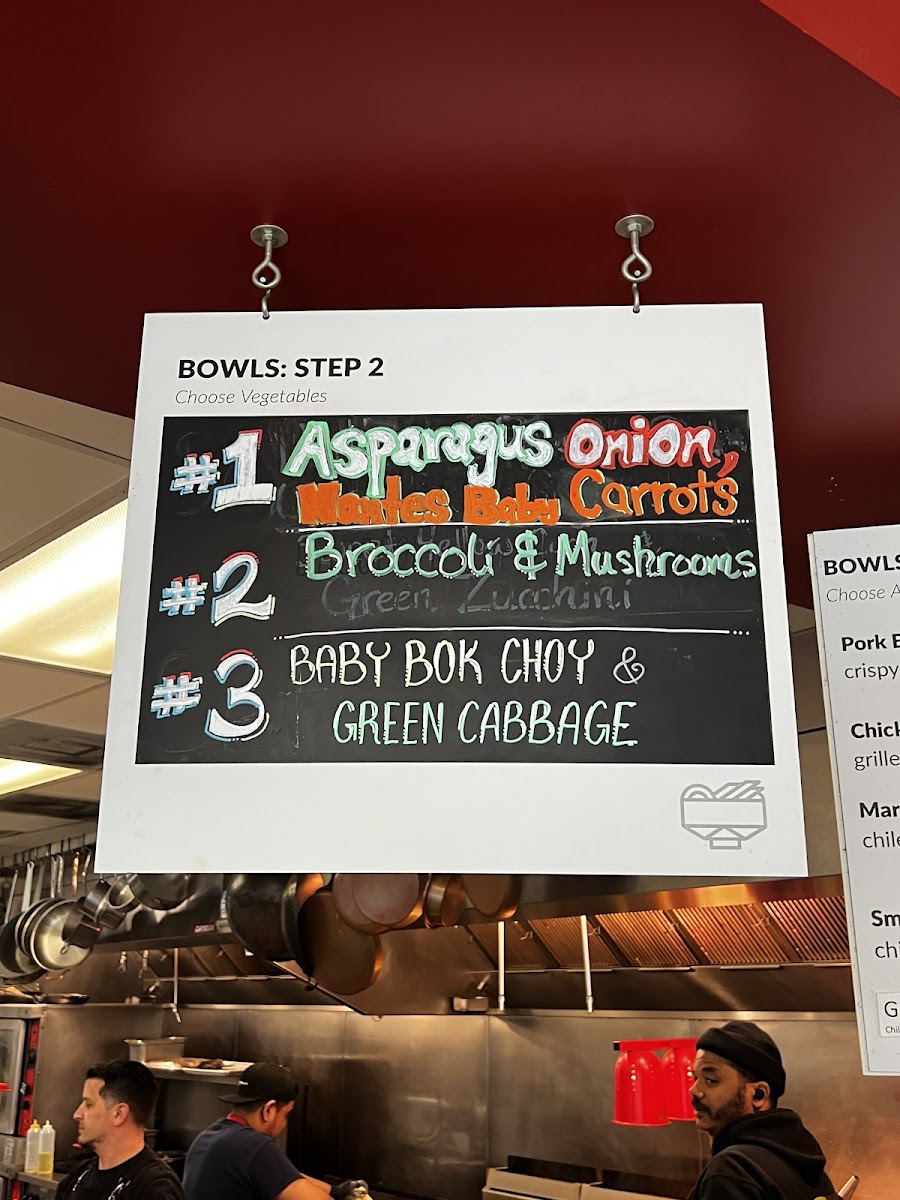 BOWLS: STEP 2
Choose Vegetables
#1 Asparagus Onion,
Nantes Baby Carrots
#2 Broccoli & Mushrooms
Green Zucchini
#3 BABY BOK CHOY &
GREEN CABBAGE
BOWLS
Choose A
Pork B
crispy
Chick
grille
Mar
chile
Sm
chi
G
Chil